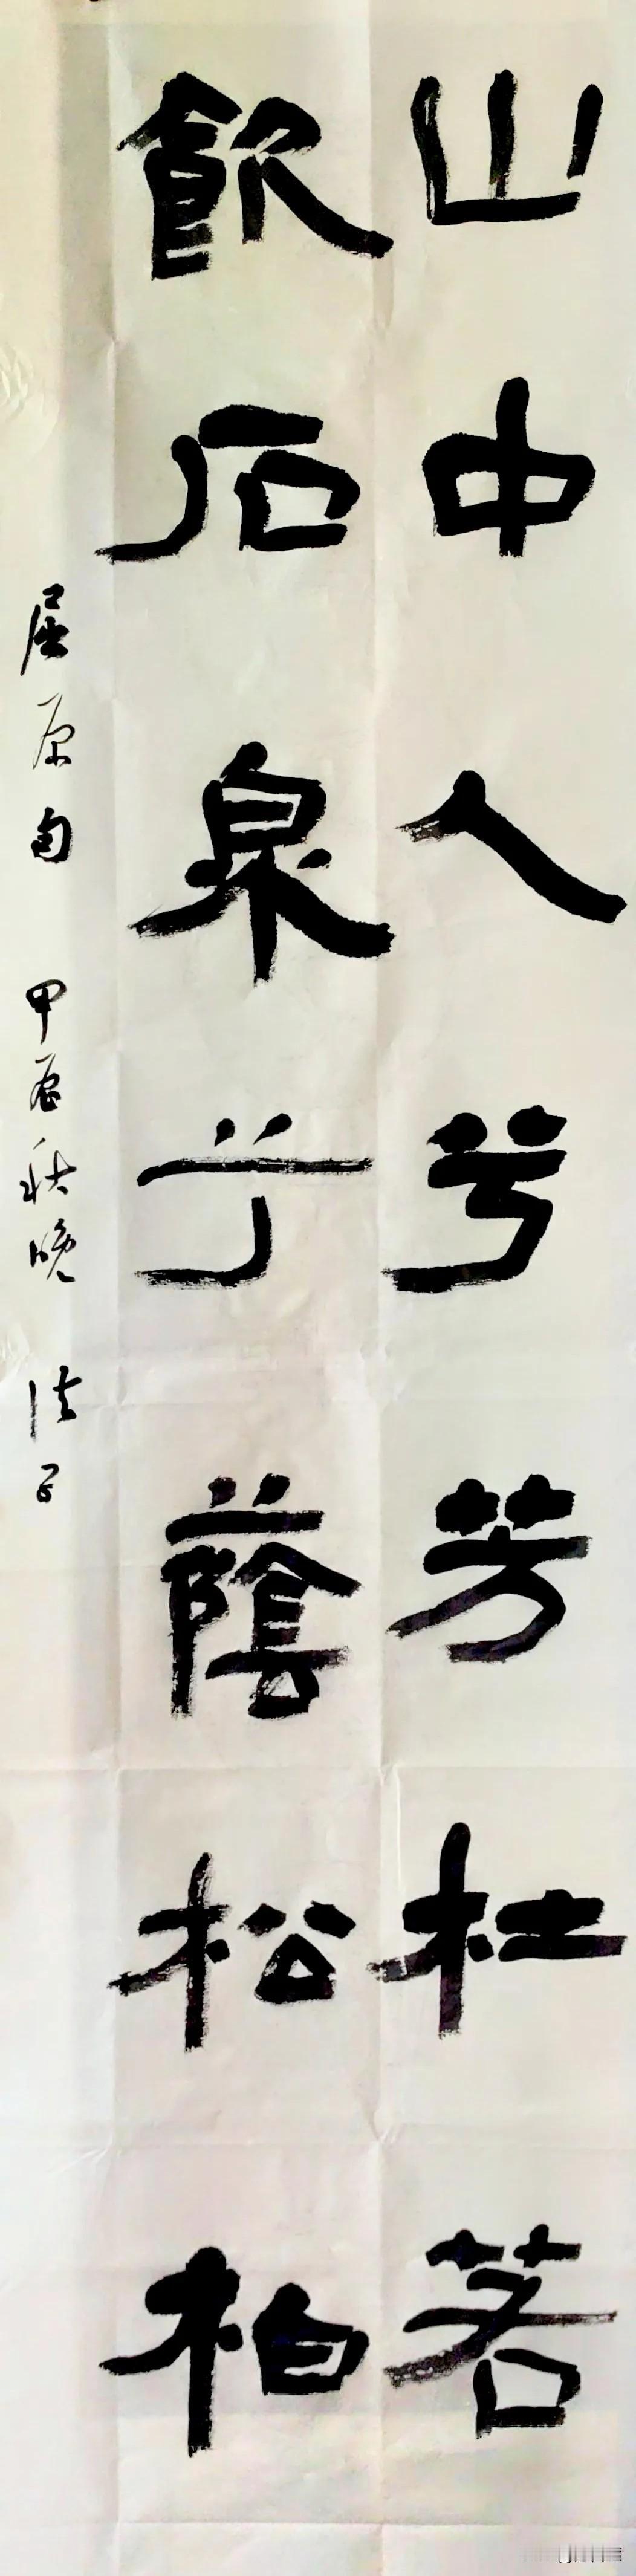 山中人兮芳杜若
飲石泉兮蔭松柏
屈原句 甲辰秋晚